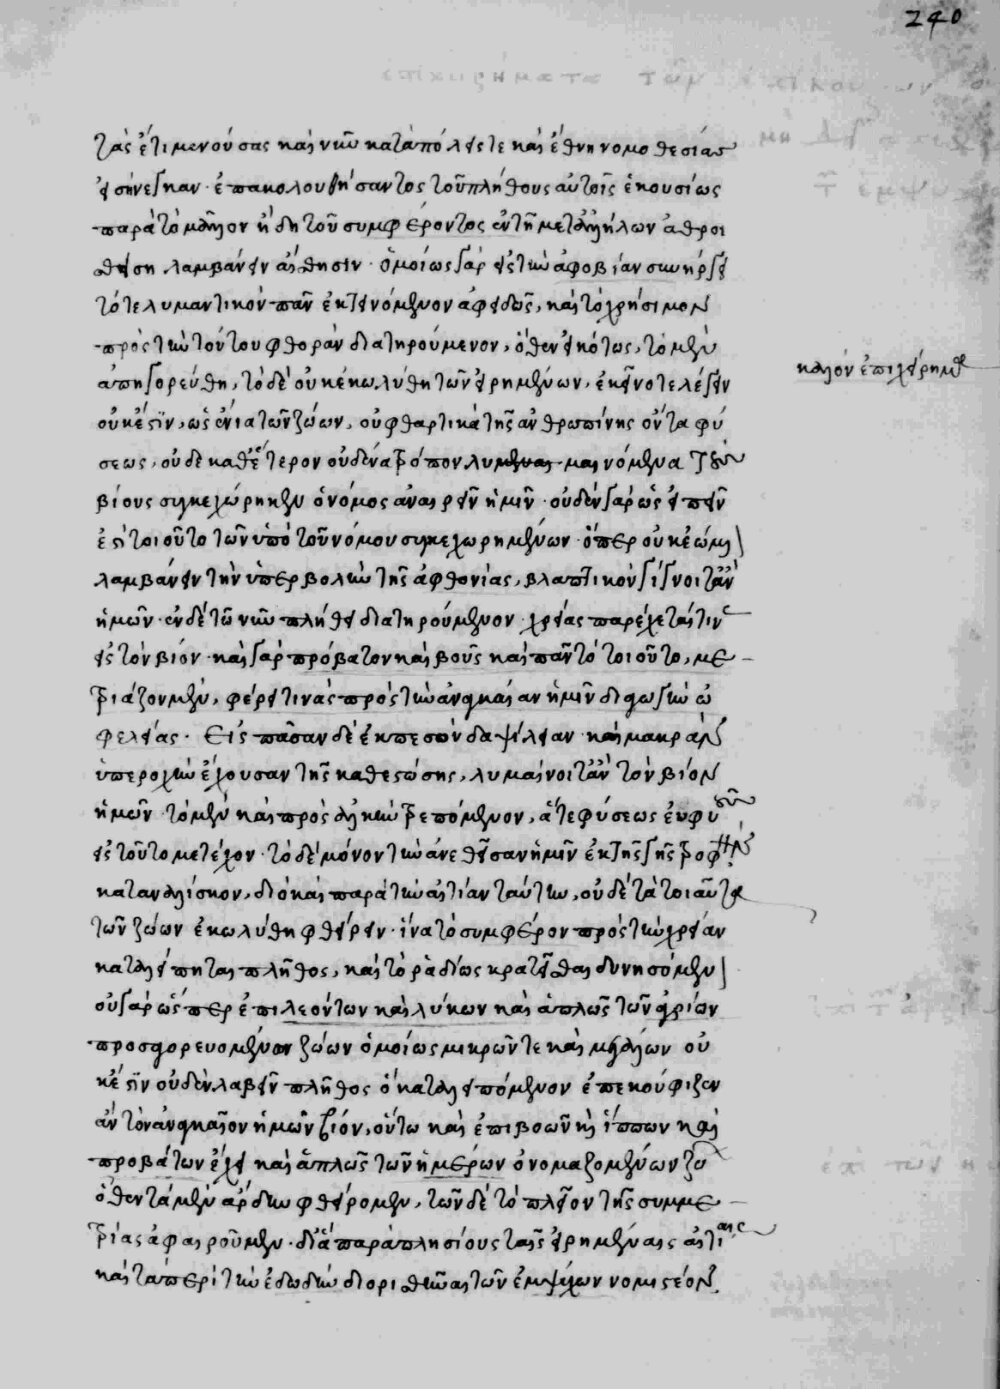 240
τὰς ἔτι μενούσας καὶ νῦν κατὰ πόλεις τε καὶ ἔθνη νομοθεσίας
εἰσήνεγκαν· ἐπακολουθήσαντος τοῦ πλήθους αὐτοῖς ἑκουσίως
παρὰ τὸ μᾶλλον ἤδη τοῦ συμφέροντος ἐν τῇ μετ' ἀλλήλων ἀθροί
σει λαμβάνειν αἴσθησιν· ὁμοίως γὰρ εἰς τὴν ἀφοβίαν συνήργει
τό τε λυμαντικὸν πᾶν ἐκτεινόμενον ἀφειδῶς, καὶ τὸ χρήσιμον
πρὸς τὴν τούτου φθορὰν διατηρούμενον, ὅθεν εἰκότως, τὸ μὲν
ἀπηγορεύθη, τὸ δὲ οὐκ ἐκωλύθη τῶν εἰρημένων, ἐκεῖνο τε λέγειν
οὐκ ἔστιν, ὡς ἔνια τῶν ζώων, οὐ φθαρτικὰ τῆς ἀνθρωπίνης ὄντα φύ
σεως, οὐδὲ καθ' ἕτερον οὐδένα τρόπον λυμαινόμενα τοὺς
βίους συγκεχώρηκεν ὁ νόμος ἀναιρεῖν ἡμῖν· οὐδὲν γὰρ ὡς εἰπεῖν
ἐστὶ τοιοῦτο τῶν ὑπὸ τοῦ νόμου συγκεχωρημένων· ὅπερ οὐκ ἐώμενον
λαμβάνειν τὴν ὑπερβολὴν τῆς ἀφθονίας, βλαπτικὸν γίγνοιτ' ἂν
ἡμῶν· ἐν δὲ τῷ νῦν πλήθει διατηρούμενον· χρείας παρέχεταί τινας
εἰς τὸν βίον· καὶ γὰρ πρόβατον καὶ βοῦς καὶ πᾶν τὸ τοιοῦτο, με
τριάζον μὲν, φέρει τινὰς πρὸς τὴν ἀναγκαίαν ἡμῖν διαγωγὴν ὠ
φελείας· εἰς πᾶσαν δὲ ἐκπεσὸν δαψίλειαν καὶ μακρὰν
ὑπεροχὴν ἔχουσαν τῆς καθεστώσης, λυμαίνοιτ' ἂν τὸν βίον
ἡμῶν· τὸ μὲν καὶ πρὸς ἀλκὴν τρεπόμενον, ἅτε φύσεως εὐφυοῦς
εἰς τοῦτο μετέχον· τὸ δὲ μόνον τὴν ἀνεθεῖσαν ἡμῖν ἐκ τῆς γῆς τροφὴν
καταναλίσκον, διὸ καὶ παρὰ τὴν αἰτίαν ταύτην, οὐδὲ τὰ τοιαῦτα
τῶν ζώων ἐκωλύθη φθείρειν· ἵνα τὸ συμφέρον πρὸς τὴν χρείαν
καταλείπηται πλῆθος, καὶ τὸ ῥᾳδίως κρατεῖσθαι δυνησόμενον
οὐ γὰρ ὥσπερ ἐπὶ λεόντων καὶ λύκων καὶ ἁπλῶς τῶν ἀγρίων
προσαγορευομένων ζώων ὁμοίως μικρῶν τε καὶ μεγάλων οὐ
κ ἔστιν οὐδὲν λαβεῖν πλῆθος ὃ καταλειπόμενον ἐπεκούφιζεν
ἂν τὸν ἀναγκαῖον ἡμῶν βίον, οὕτω καὶ ἐπὶ βοῶν καὶ ἵππων καὶ
προβάτων ἔχει καὶ ἁπλῶς τῶν ἡμέρων ὀνομαζομένων ζώων
ὅθεν τὰ μὲν ἄρδην φθείρομεν, τῶν δὲ τὸ πλεῖον τῆς συμμε
τρίας ἀφαιροῦμεν· δι' ἃ παραπλησίους ταῖς εἰρημέναις αἰτίαις
καὶ τὰ περὶ τὴν ἐδωδὴν διορισθῆναι τῶν ἐμψύχων νομιστέον
καλὸν ἐπιχείρημα